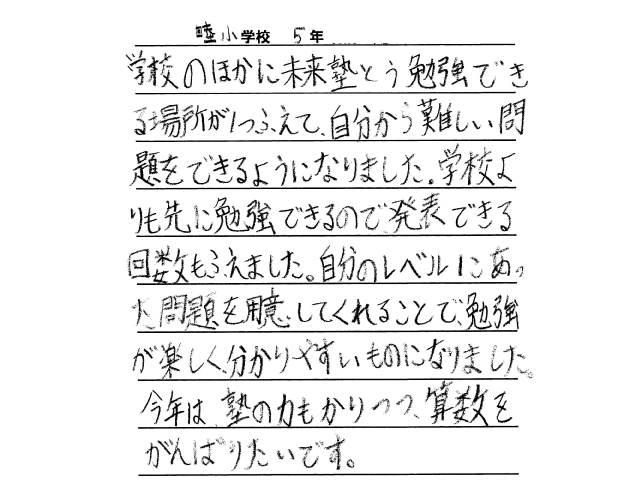 睦小学校 5年
学校のほかに未来塾とう勉強でき
る場所が1つふえて、自分から難しい問
題をできるようになりました。学校よ
りも先に勉強できるので、発表できる
回数もふえました。自分のレベルにあっ
た問題を用意してくれることで、勉強
が楽しく分かりやすいものになりました。
今年は、塾の力もかりつつ、算数を
がんばりたいです。